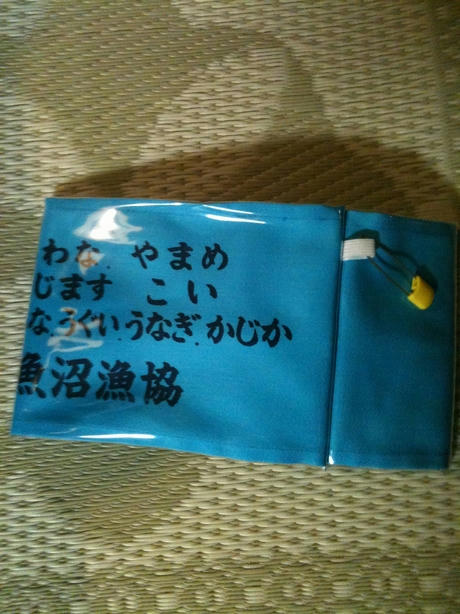 わな. やまめ
じます こい
な.うぐい.うなぎ.かじか
魚沼漁協